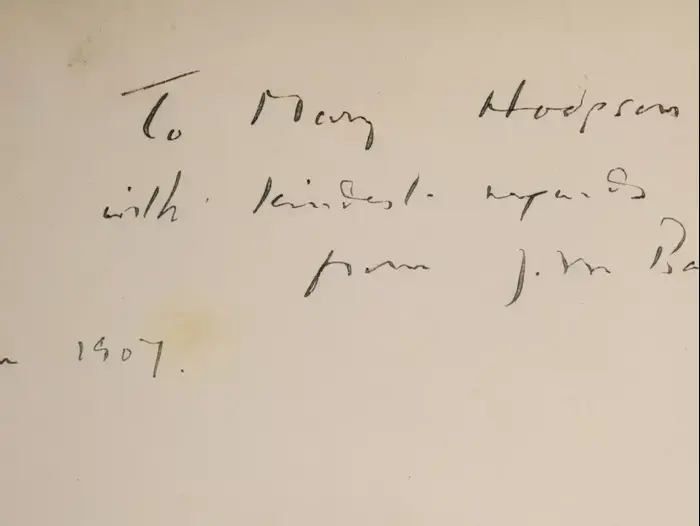 To Mary Hodgson
with kindest regards
from J. M Ba
1907.